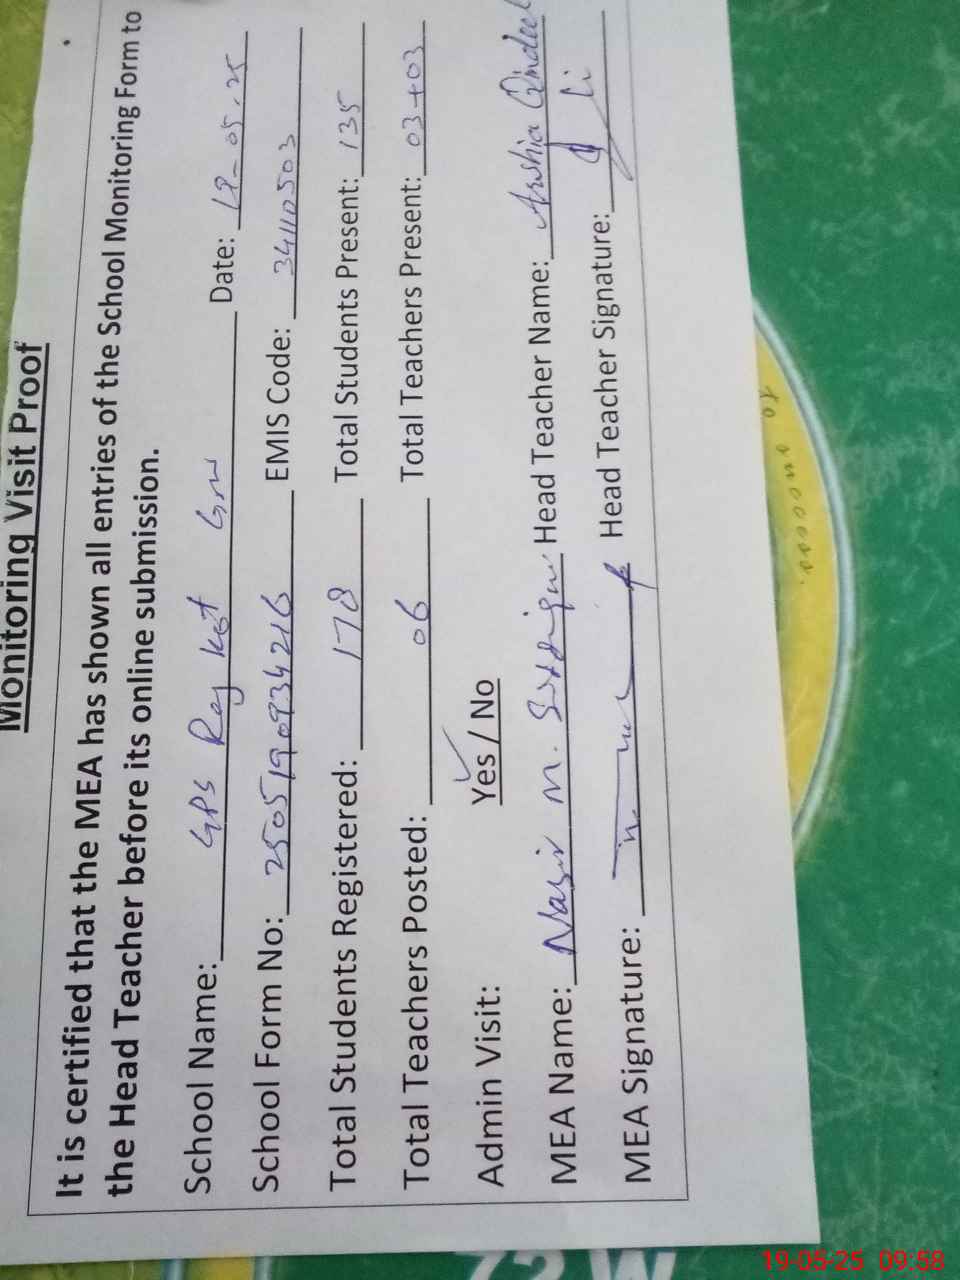 Monitoring Visit Proof
It is certified that the MEA has shown all entries of the School Monitoring Form to
the Head Teacher before its online submission.
School Name: GPS Raj Kot Grw Date: 19-05-25
School Form No: 25051909934216 EMIS Code: 34110503
Total Students Registered: 178 Total Students Present: 135
Total Teachers Posted: 06 Total Teachers Present: 03+03
Admin Visit: Yes / No
MEA Name: Nasir M. Head Teacher Name: Arshia
MEA Signature: Head Teacher Signature:
19-05-25 09:58